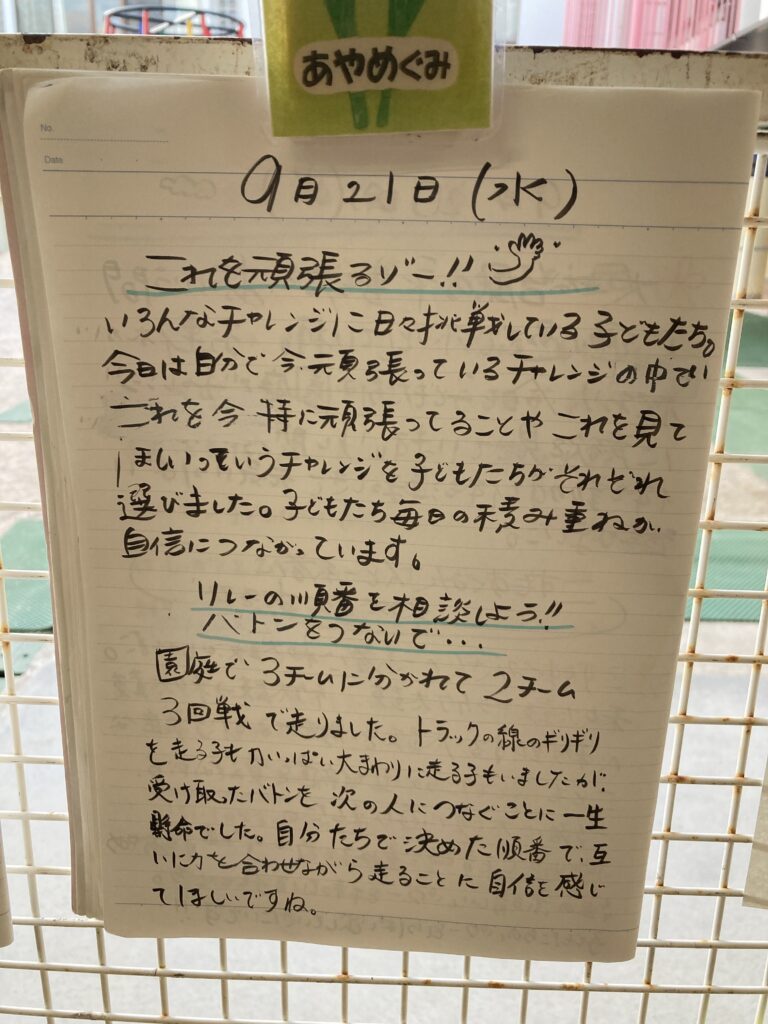 あやめぐみ
No.
Date
9月21日(水)
これを頑張るゾー!!
いろんなチャレンジに日々挑戦している子どもたち。
今日は自分で今頑張っているチャレンジの中で
これを今特に頑張ってることやこれを見て
ほしいっていうチャレンジを子どもたちがそれぞれ
選びました。子どもたち毎日の積み重ねが
自信につながっています。
リレーの順番を相談しよう!!
バトンをつないで・・・
園庭で3チームに分かれて2チーム
3回戦で走りました。トラックの線のギリギリ
を走る子も力いっぱい大まわりに走る子もいましたが、
受け取ったバトンを次の人につなぐことに一生
懸命でした。自分たちで決めた順番で、互
いに力を合わせながら走ることに自信を感じ
てほしいですね。